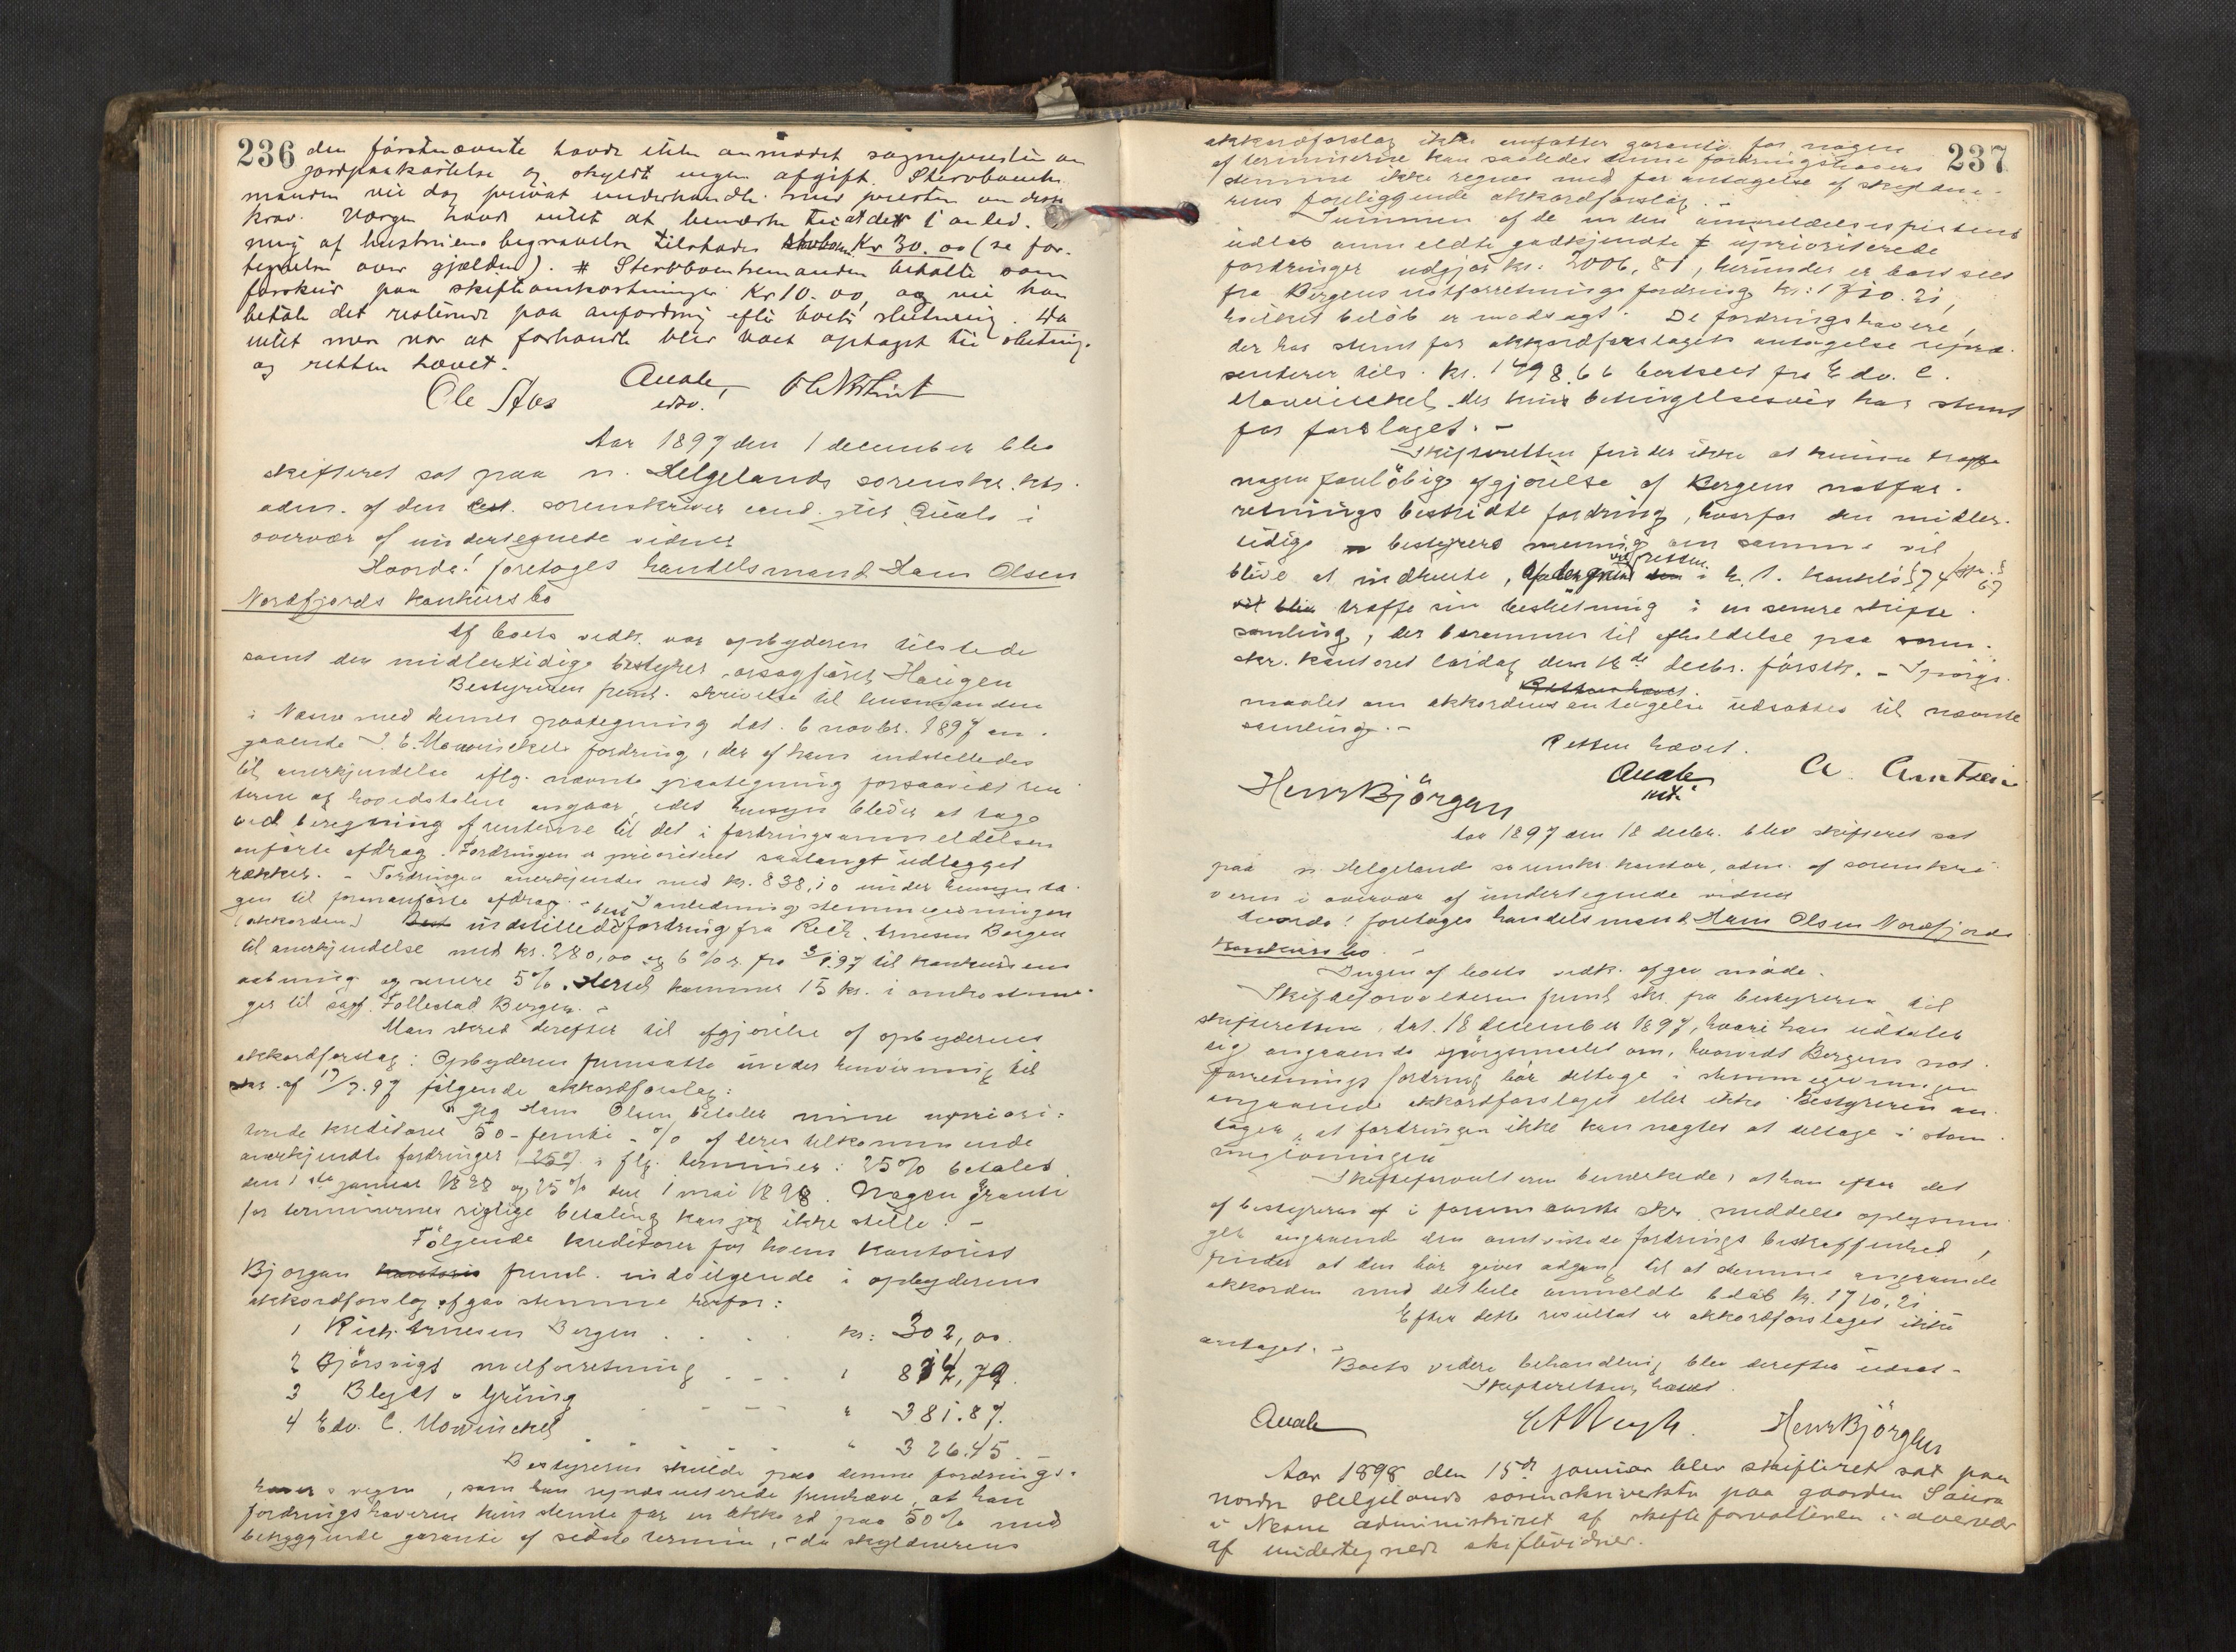 236 den førstnævnte havde ikke anmodet sognepresten om
jordpaakastelse og skyldt ingen afgift. Stervboenke
manden vil dog privat underhandle med presten om dette
krav. Værgen havde intet at bemærke til at der i anled.
ning af hustruens begravelse tilstodes Kr 30.00 (se for.
tegnelse over gjælden). # Stervboenkemanden betalte som
forskud paa skifteomkostninger Kr 10.00, og vil han
betale det resterende paa anfordring efter boets slutning. Da
intet mer var at forhandle blev boet optaget til slutning.
og retten hævet.
Ole Aas Qvale,
edsv.
Aar 1897 den 1 december blev
skifteret sat paa n. Helgelands sorenskr. ktr.
adm. af den sorenskriver cand. jur. Qvale i
overvær af undertegnede vidner
Hvorda! foretoges handelsmand Hans Olsen
Nordfjords konkursbo
Af boets vedk. var opbyderen tilstede
samt den midlertidige bestyrer, orsagfører Haugen
Bestyreren freml. skrivelse til lensmanden
i Næsne med dennes paategning dat. 6 novbr. 1897 an.
gaaende J. E. Mowinckels fordring, der af ham indstilledes
til anerkjendelse iflg. nævnte paategning forsaavidt ren
terne og hovedstolen angaar, idet hensyn bleder at tage
ved beregning af renterne til det i fordringsanmeldelsen
anførte afdrag. Fordringen er prioriteret saalangt udlægget
rækker. - Fordringen anerkjendes med kr. 838,10 under hensynta.
gen til foranførte afdrag. - I anledning stemmegivningen
(akkorden) best indstillede fordring fra Rich. Arnesen Bergen
til anerkjendelse med kr. 280,00 og 6 % r. fra 3/1.97 til konkursens
aabning og senere 5%. Hertil kommer 15 kr. i omkostnin-
ger til sagf. Follestad Bergen. -
Man skred derefter til afgjørelse af opbyderens
akkordforslag: Opbyderen fremsatte under henvisning til
af 17/9.97 følgende akkordforslag:
"Jeg Hans Olsen betaler mine upriori-
terede kreditorer 50 - femti - % af deres tilkommende
anerkjendte fordringer 25% i flg. terminer: 25% betales
den 1ste januar 1898 og 25% den 1 mai 1898. Nogen garanti
for terminernes rigtige betaling kan jeg ikke stille. -
Følgende kreditorer for hvem kontorist
Bjørgan freml. indvilgende i opbyderens
akkordforslag afgav stemme herfor:
1 Rich. Arnesen Bergen . . . kr: 302,00.
2 Bjørsvigs melforretning . . . " 814,79.
3 Blydt & Grüning - - - " 381.87.
4 Edv. C. Mowinckel " 326.45.
Bestyreren skulde paa denne fordrings-
havers vegne, som han repræsenterede fremhæve, at han
fordringshaveren kun stemte for en akkord paa 50% med
betryggende garanti af sidste termin, - da skyldnerens
237
akkordforslag ikke omfatter garanti for nogen
af terminerne kan saaledes denne fordringshavers
stemme ikke regnes med for antagelse af skyldne-
rens foreliggende akkordforslag. -
Summen af de inden anmeldelsesfristens
udløb anmeldte godkjendte & uprioriterede
fordringer udgjør kr. 2006,81, herunder er bortseet
fra Bergens notforretnings fordring kr: 1710.21,
hvilket beløb er modsagt. De fordringshavere,
der har stemt for akkordforslagets antagelse repræ-
senterer tils. kr. 1498,66 bortseet fra Edv. C.
Mowinckel der kun betingelsesvis har stemt
for forslaget. -
Skifteretten finder ikke at kunne træffe
nogen foreløbig afgjørelse af Bergens notfor-
retnings bestridte fordring, hvorfor den midler-
tidige bestyrers mening om samme vil
blive at indhente, vil retten i h. t. konkl. § 74 jfr. § 67
træffe sin beslutning i en senere skifte
samling, der berammes til afholdelse paa soren-
skr. kontoret lørdag den 18de decbr. førstk. - Spørgs-
Retten hævet.
maalet om akkordens antagelse udsattes til nævnte
samling. -
Retten hævet.
Henr Bjørgan Qvale A. Arntzen
Aar 1897 den 18 decbr. blev skifteret sat
paa n. Helgeland sorenskr. kontor, adm. af sorenskri-
veren i overvær af undertegnede vidner
Hvorda! foretoges handelsmand Hans Olsen Nordfjords
konkursbo. -
Ingen af boets vedk. afgav møde.
Skifteforvalteren freml. skr. fra bestyreren til
skifteretten, dat. 18 december 1897, hvori han udtaler
sig angaaende spørgsmaalet om, hvorvidt Bergens not-
forretnings fordring bør deltage i stemmegivningen
angaaende akkordforslaget eller ikke. Bestyreren an-
tager, at fordringen ikke kan nægtes at deltage i stem-
megivningen
Skifteforvalteren bemærkede, at han efter det
af bestyreren i foran nævnte skr. meddelte oplysnin
ger angaaende den omtvistede fordrings beskaffenhed,
finder at den bør gives adgang til at stemme angaaende
akkorden med det hele anmeldte beløb kr. 1710,21
Efter dette resultat er akkordforslaget ikke
antaget. -
Boets videre behandling blev derefter udsat -
Skifteretten hævet.
Qvale Henr Bjørgan
Aar 1898 den 15de januar blev skifteret sat paa
nordre Helgelands sorenskriverktr paa gaarden Saura
i Nesne administreret af skifteforvalteren i overvær
af undertegnede skiftevidner.